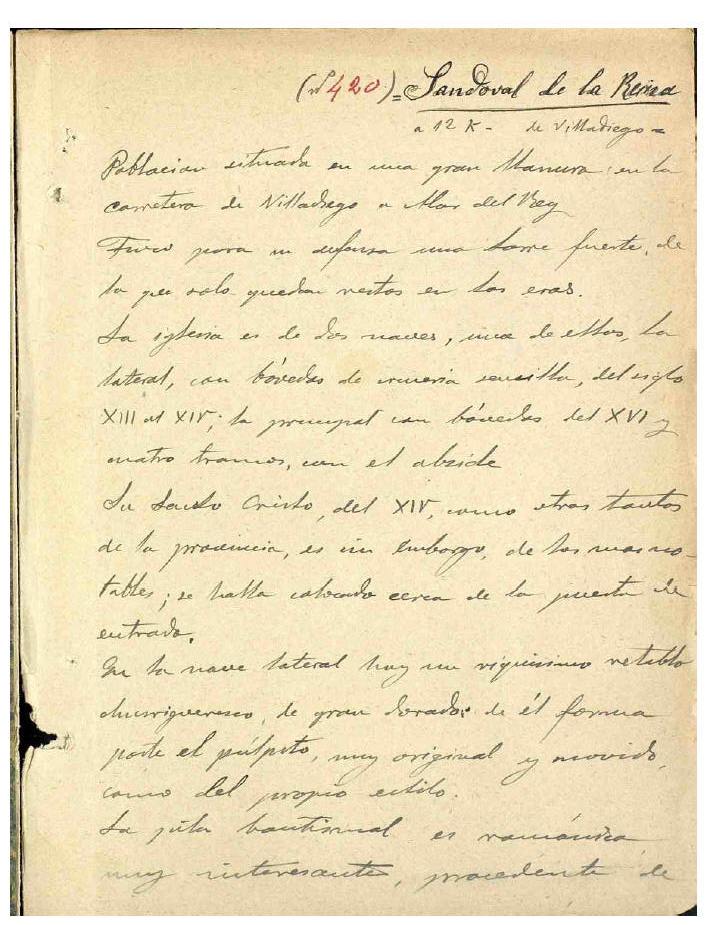 (nº 420) = Sandoval de la Reina
a 12 K - de Villadiego =
Poblacion situada en una gran llanura: en la
carretera de Villadiego a Alar del Rey
Tuvo para su defensa una torre fuerte, de
la que solo quedan restos en las eras.
La iglesia es de dos naves, una de ellas, la
lateral, con bóvedas de cruceria sencilla, del siglo
XIII al XIV; la principal con bóvedas del XVI y
cuatro tramos, con el abside
Su Santo Cristo, del XIV, como otros tantos
de la provincia, es sin embargo, de los mas no-
tables; se halla colocado cerca de la puerta de
entrada.
En la nave lateral hay un riquisimo retablo
churrigueresco, de gran dorado: de él forma
parte el púlpito, muy original y movido,
como del propio estilo.
La pila bautismal es románica
muy interesante, procedente de